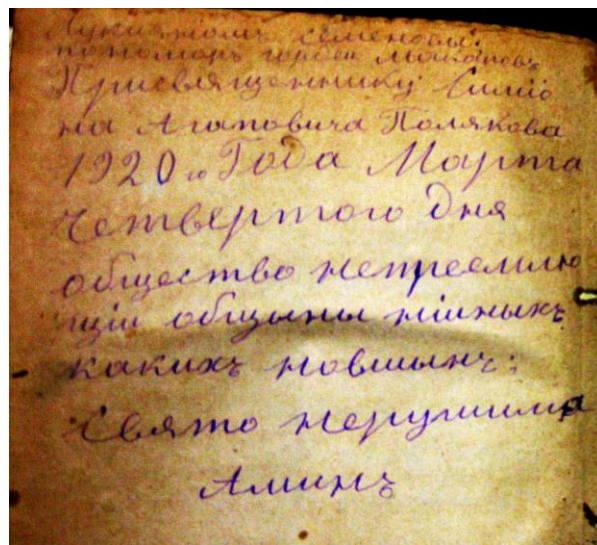 Лукияномъ Семеновя.
пономоръ гордеи Макаровъ
Присвященнику Симио
на Агаповича Полякова
1920 го Года Марта
Четвертого дня
общество непреемлю
щіи общыны нііныхъ
какихъ новшынъ:
Свято нерушима
Аминъ